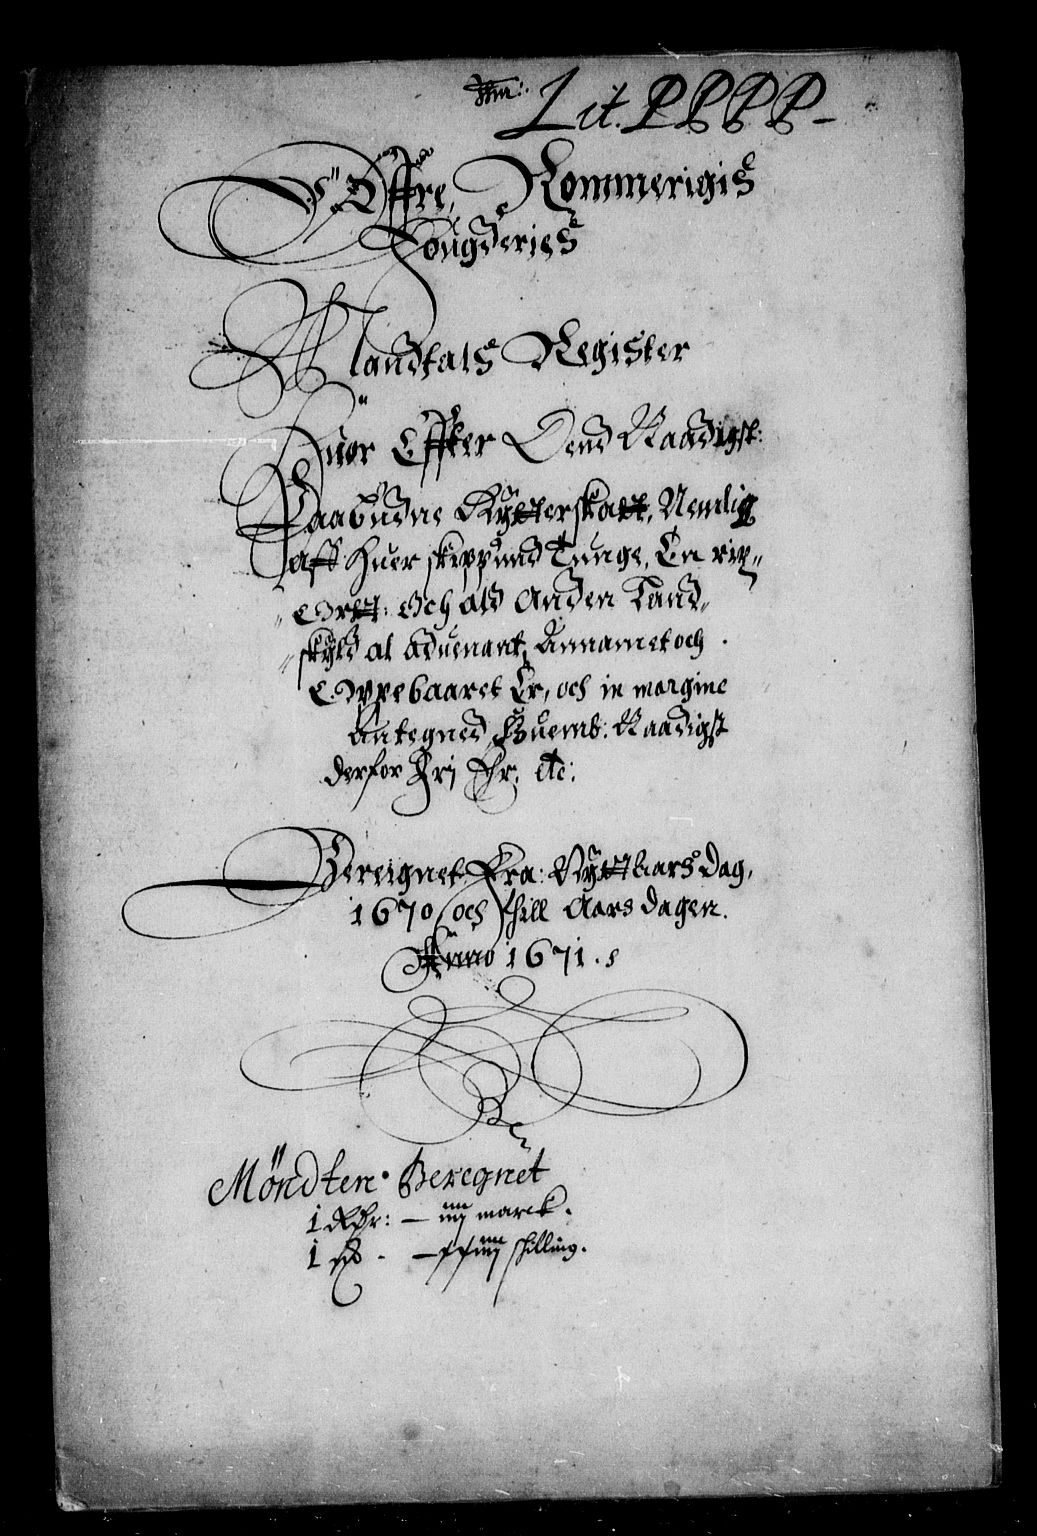 Lit. PPPP
Öffre, Rommerigis
Fougderies
Mandtals Register
Huor Effter Dend Naadigst:
Paabudne Rytterskatt, Nemlig
aff Huer skippund Tunge, En rix„
„Ort: Och ald Anden Land„
„skyld at advenant, Annamet och
Oppebaaret Er, och in margine
Antegned, Huemb: Naadigst
derfor Frj Er, etc:
Bereignet Fra: Nyttaars Dag,
1670 och thill Aars dagen.
Anno 1671.
Möndten Beregnet
1 Rdr: — iiij marck.
1 — iiij schilling.